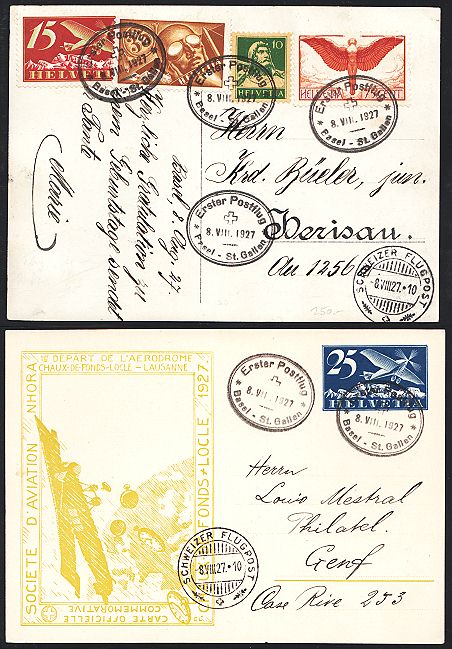 15
HELVETIA
10
HELVETIA
HELVETIA
Erster Postflug
8. VIII. 1927
Basel - St. Gallen
Erster Postflug
8. VIII. 1927
Basel - St. Gallen
Erster Postflug
8. VIII. 1927
Basel - St. Gallen
Basel, 8. Aug. 27
Herzliche Gratulation zu
Geburtstag sendet
Tante
Marie
Herrn
Krd. Büeler, jun.
Erster Postflug
8. VIII. 1927
Basel - St. Gallen
Herisau.
1256
SCHWEIZER FLUGPOST
-8.VIII.27.-10
250.-
1er DEPART DE L'AERODROME
CHAUX-DE-FONDS-LOCLE - LAUSANNE
SOCIETE D'AVIATION NHORA
FONDS-LOCLE 1927
CARTE OFFICIELLE
COMMEMORATIVE
Erster Postflug
8. VIII. 1927
Basel - St. Gallen
25
HELVETIA
8. VIII. 1927
Basel - St. Gallen
Herrn
Louis Mestral
Philatel.
Genf
Case Rive 253
SCHWEIZER FLUGPOST
-8.VIII.27.-10